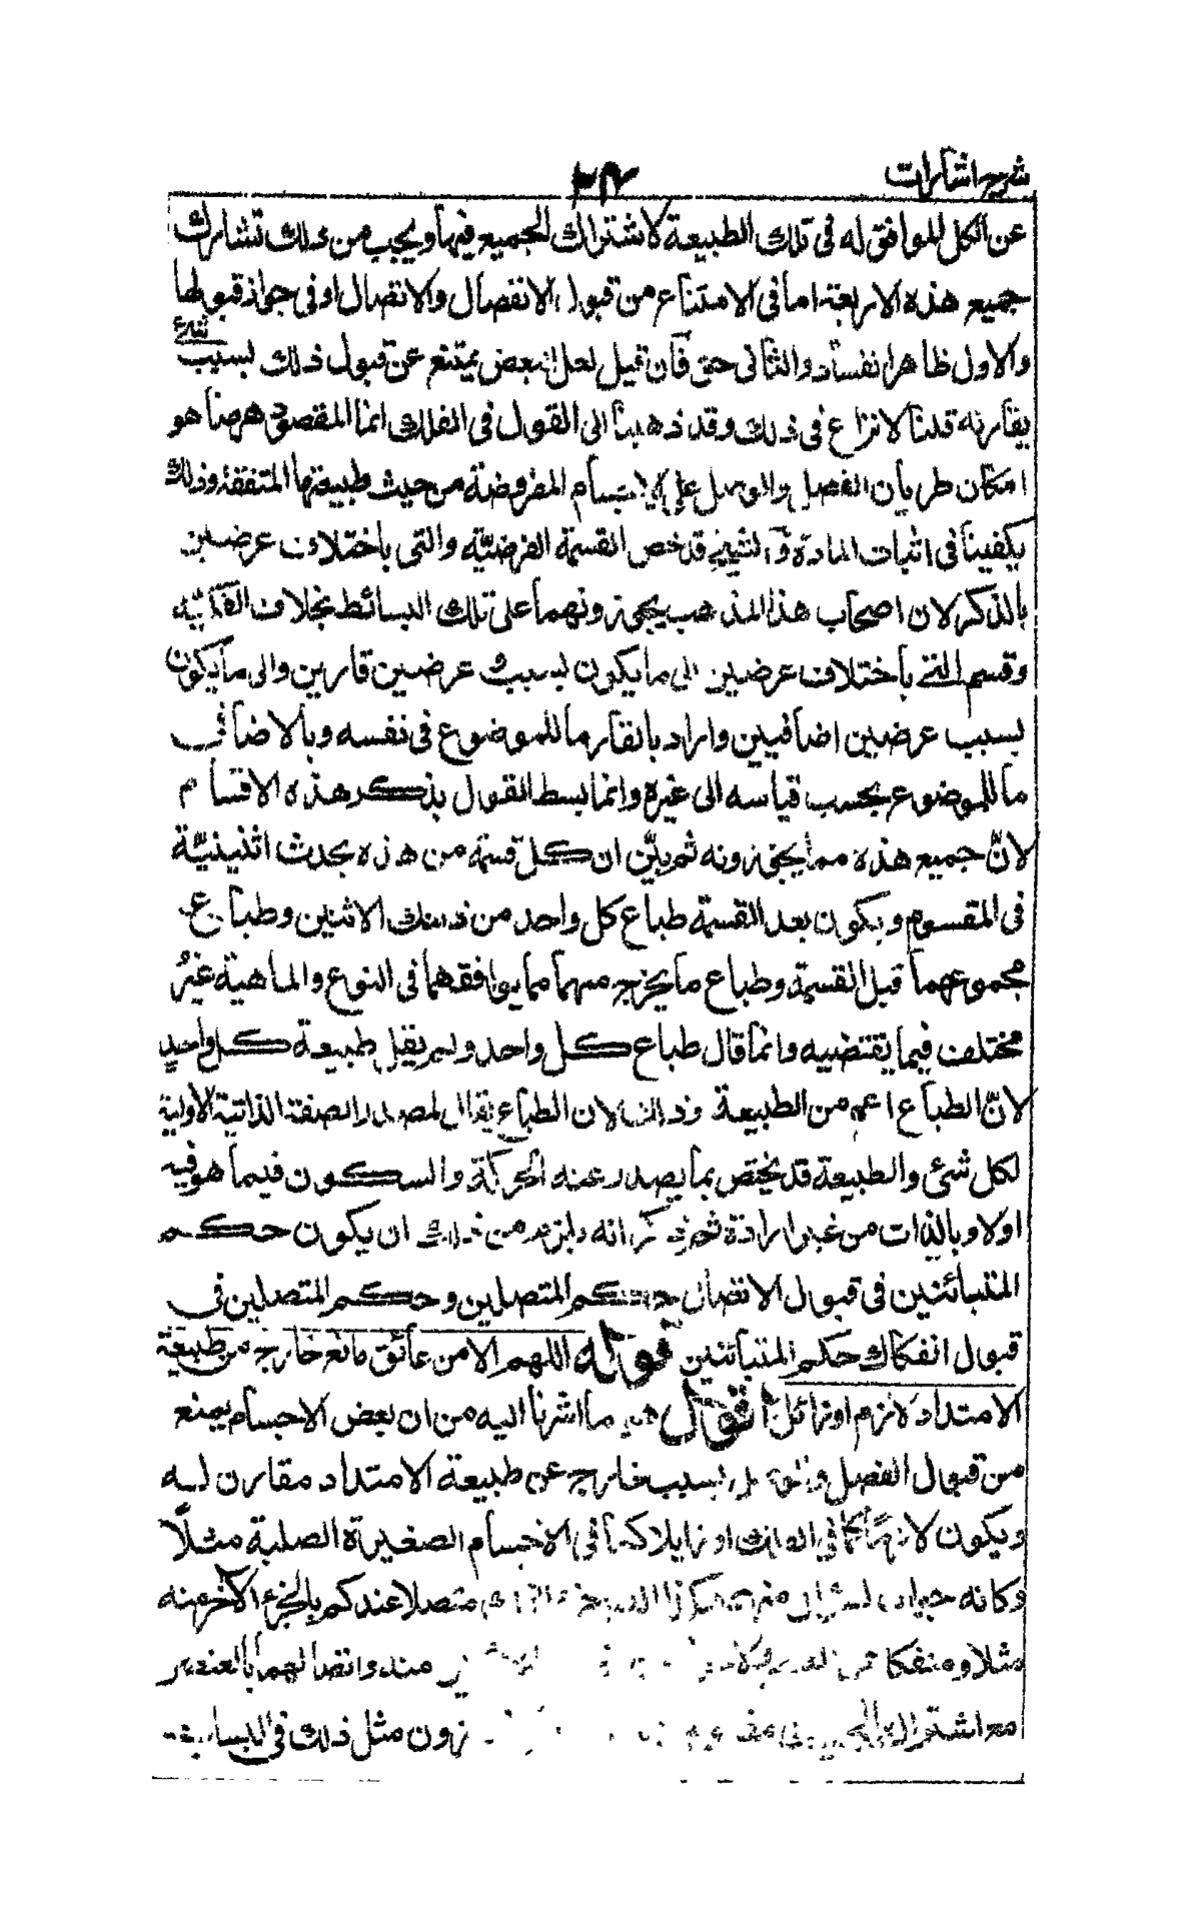 شرح اشارات
٢٤
عن الكل الموافق له في تلك الطبيعة لاشتراك الجميع فيها ويجب من ذلك تشارك
جميع هذه الاربعة اما في الامتناع من قبول الانفصال والاتصال او في جواز قبولها
والاول ظاهر الفساد والثاني حق فان قيل لعل البعض يمتنع عن قبول ذلك بسبب
يقارنه قلنا لا نزاع في ذلك وقد ذهبنا الى القول في الفلك انما المقصود ههنا هو
امكان طريان الفصل والوصل على الاجسام المفروضة من حيث طبيعتها المتفقة وذلك
يكفينا في اثبات المادة والشيخ قد خص القسمة الفرضية والتي باختلاف عرضين
بالذكر لان اصحاب هذا المذهب يجوزونهما على تلك البسائط بخلاف الفكية
وقسم التي باختلاف عرضين الى ما يكون بسبب عرضين قارين والى ما يكون
بسبب عرضين اضافيين واراد بالقار ما للموضوع في نفسه وبالاضافى
ما للموضوع بحسب قياسه الى غيره وانما بسط القول بذكر هذه الاقسام
لانّ جميع هذه مما يجوزونه ثم بيّن ان كل قسمة من هذه يحدث اثنينيّة
في المقسوم ويكون بعد القسمة طباع كل واحد من ذينك الاثنين وطباع
مجموعهما قبل القسمة وطباع ما يخرج منهما مما يوافقهما في النوع والماهية غيرُ
مختلف فيما يقتضيه وانما قال طباع كل واحد ولم يقل طبيعة كل واحدٍ
لانّ الطباع اعم من الطبيعة وذلك لان الطباع يقال لمصدر الصفة الذاتية الاولية
لكل شئ والطبيعة قد يختص بما يصدر عنه الحركة والسكون فيما هو فيه
اولا وبالذات من غير ارادة ثم ذكر انه يلزم من ذلك ان يكون حكم
المتباينين في قبول الاتصال حكم المتصلين وحكم المتصلين في
قبول انفكاك حكم المتباينين قوله اللهم الا من عائق مانع خارج من طبيعة
الامتداد لازم او زائل اقول هو ما اشرنا اليه من ان بعض الاجسام يمنع
من قبول الفصل والوصل بسبب خارج عن طبيعة الامتداد مقارن له
ويكون لازمًا كما في الفلك او زايلا كما في الاجسام الصغيرة الصلبة مثلًا
وكانه متصلا عندكم بالجزء الآخر منه
مثلا ومنفكا منه واتصالهما بالعنصر
مع اشتراك الجميع زون مثل ذلك في البسايط